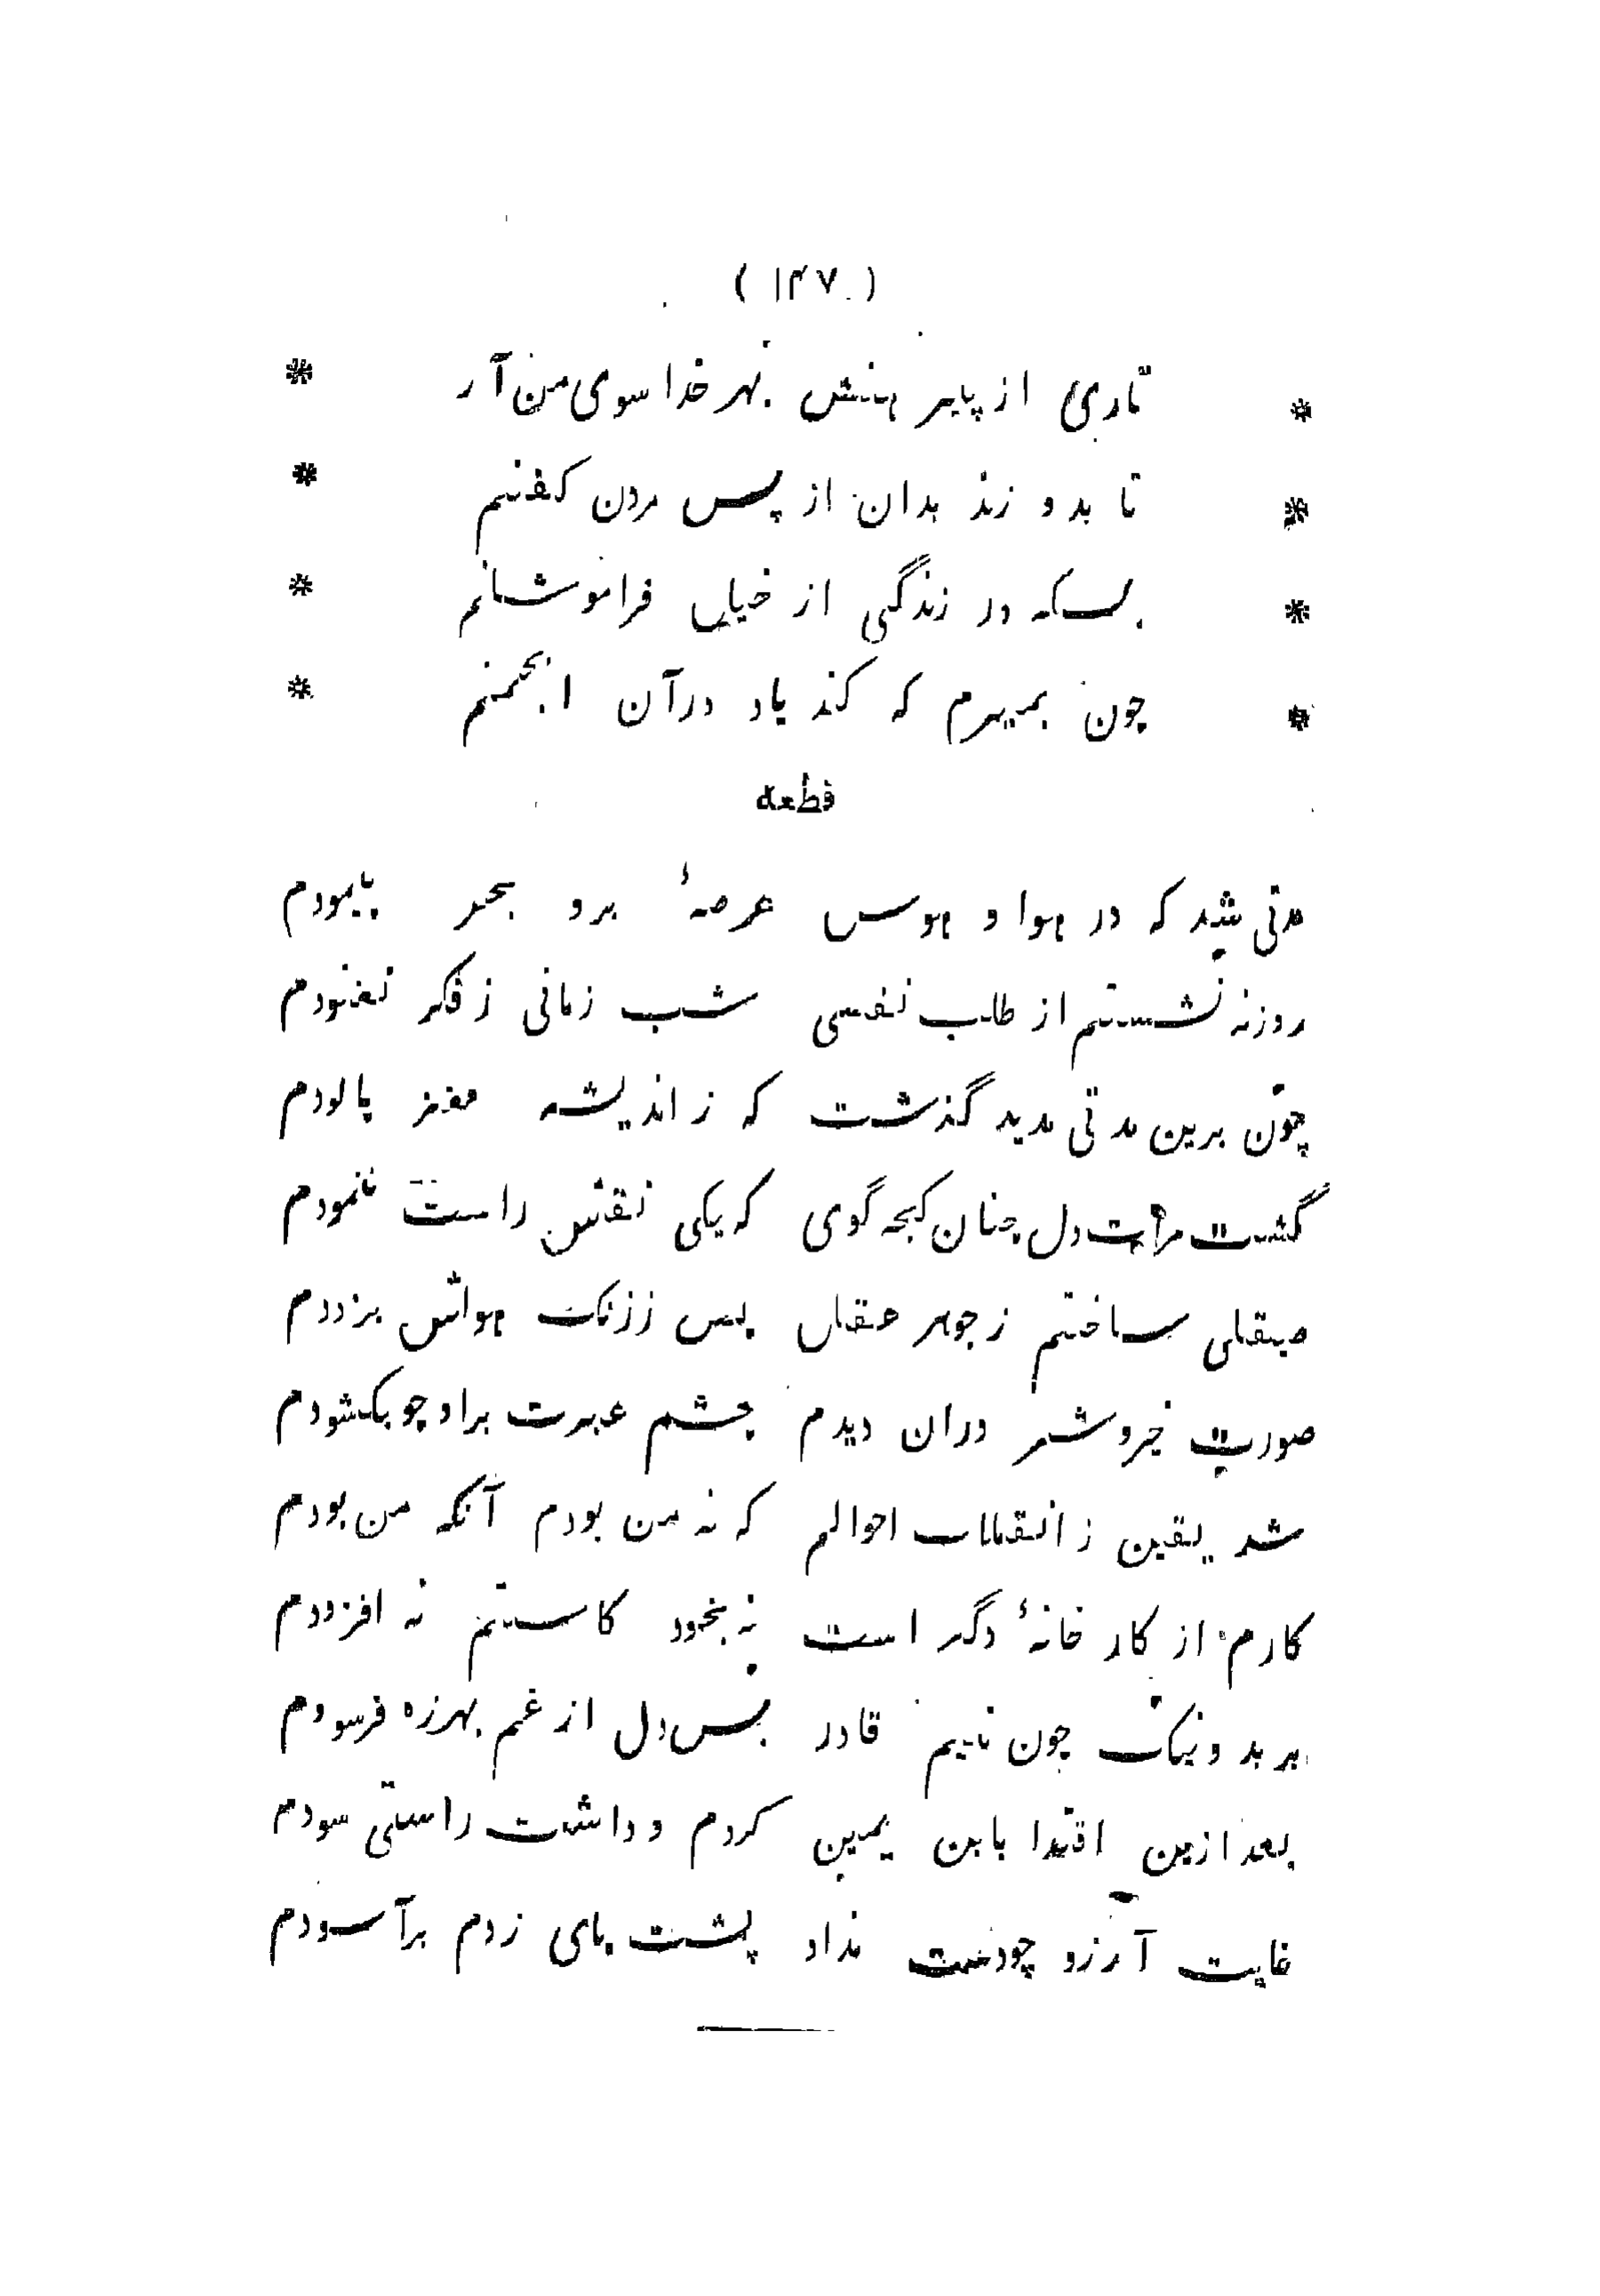 ( ۱۴۷ )
* تاری از پیر هنش بهر خدا سوی من آر *
* تا بدو زند بدان از پس مردن کفنم *
* بسکه در زندگی از خیل فراموشانم *
* چون بمیرم که کند یاد درآن انجمنم *
قطعه
مدتی شد که در هوا و هوس عرصهٔ برو بحر پیمودم
روزنه نشستم از طلب نفسی شب زمانی ز فکر نغنودم
چون برین مدتی مدید گذشت که ز اندیشه مغز پالودم
گشت مرآت دل چنان کبجه گوی که یکی نقش راست ننمودم
صیقلی ساختم ز جوهر عقل پس ززنک هواش بزددم
صورت خیروشر دران دیدم چشم عبرت براو چو بکشودم
شد یقین ز انقلاب احوالم که نه من بودم آنکه من بودم
کارم از کار خانهٔ دگر است نه بخود کاستم نه افزودم
بر بد ونیک چون نییم قادر بس دل از غم بهرزه فرسودم
بعد ازین اقتدا بابن یمین کردم و داشت راستی سودم
غایت آرزو چودست نداد پشت پای زدم برآسودم